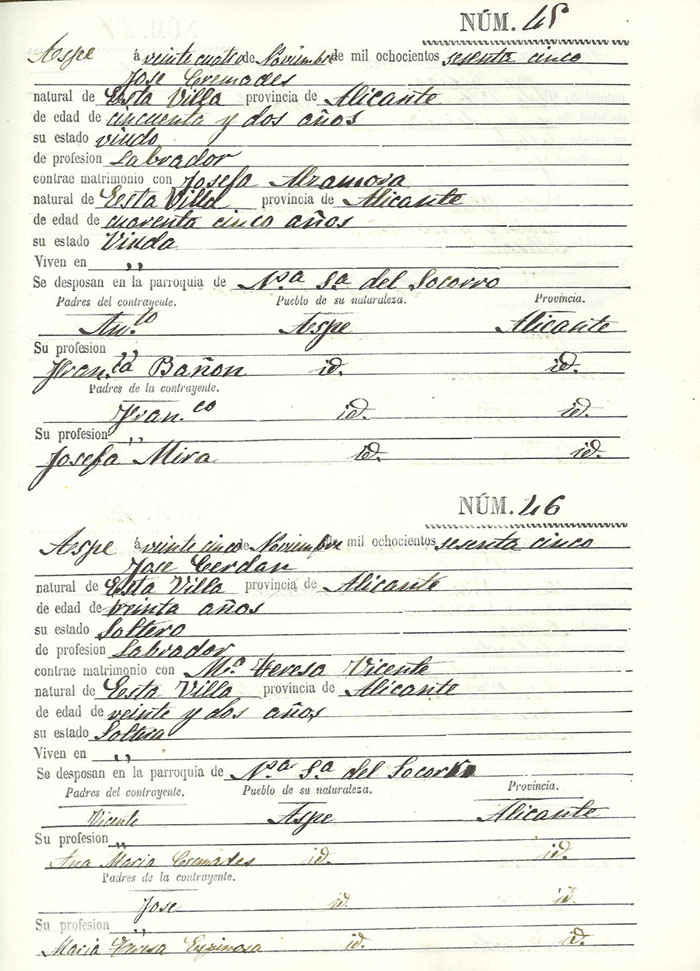 NÚM. 45
Aspe á veinte cuatro de Noviembre de mil ochocientos sesenta cinco
Jose Cremades
natural de Esta Villa provincia de Alicante
de edad de cincuenta y dos años
su estado viudo
de profesion Labrador
contrae matrimonio con Josefa Alzamora
natural de Esta Villa provincia de Alicante
de edad de cuarenta cinco años
su estado Viuda
Viven en ,,
Se desposan en la parroquia de Nª Sª del Socorro
Padres del contrayente. Pueblo de su naturaleza. Provincia.
An.to Aspe Alicante
Su profesion ,,
Fran.ca Bañon id. id.
Padres de la contrayente.
Fran.co id. id.
Su profesion ,,
Josefa Mira id. id.
NÚM. 46
Aspe á veinte cinco de Noviembre de mil ochocientos sesenta cinco
Jose Cerdan
natural de Esta Villa provincia de Alicante
de edad de treinta años
su estado Soltero
de profesion Labrador
contrae matrimonio con M.ª Teresa Vicente
natural de Esta Villa provincia de Alicante
de edad de veinte y dos años
su estado Soltera
Viven en ,,
Se desposan en la parroquia de Nª Sª del Socorro
Padres del contrayente. Pueblo de su naturaleza. Provincia.
Vicente Aspe Alicante
Su profesion ,,
Ana Maria Cremades id. id.
Padres de la contrayente.
Jose id. id.
Su profesion ,,
Maria Teresa Espinosa id. id.